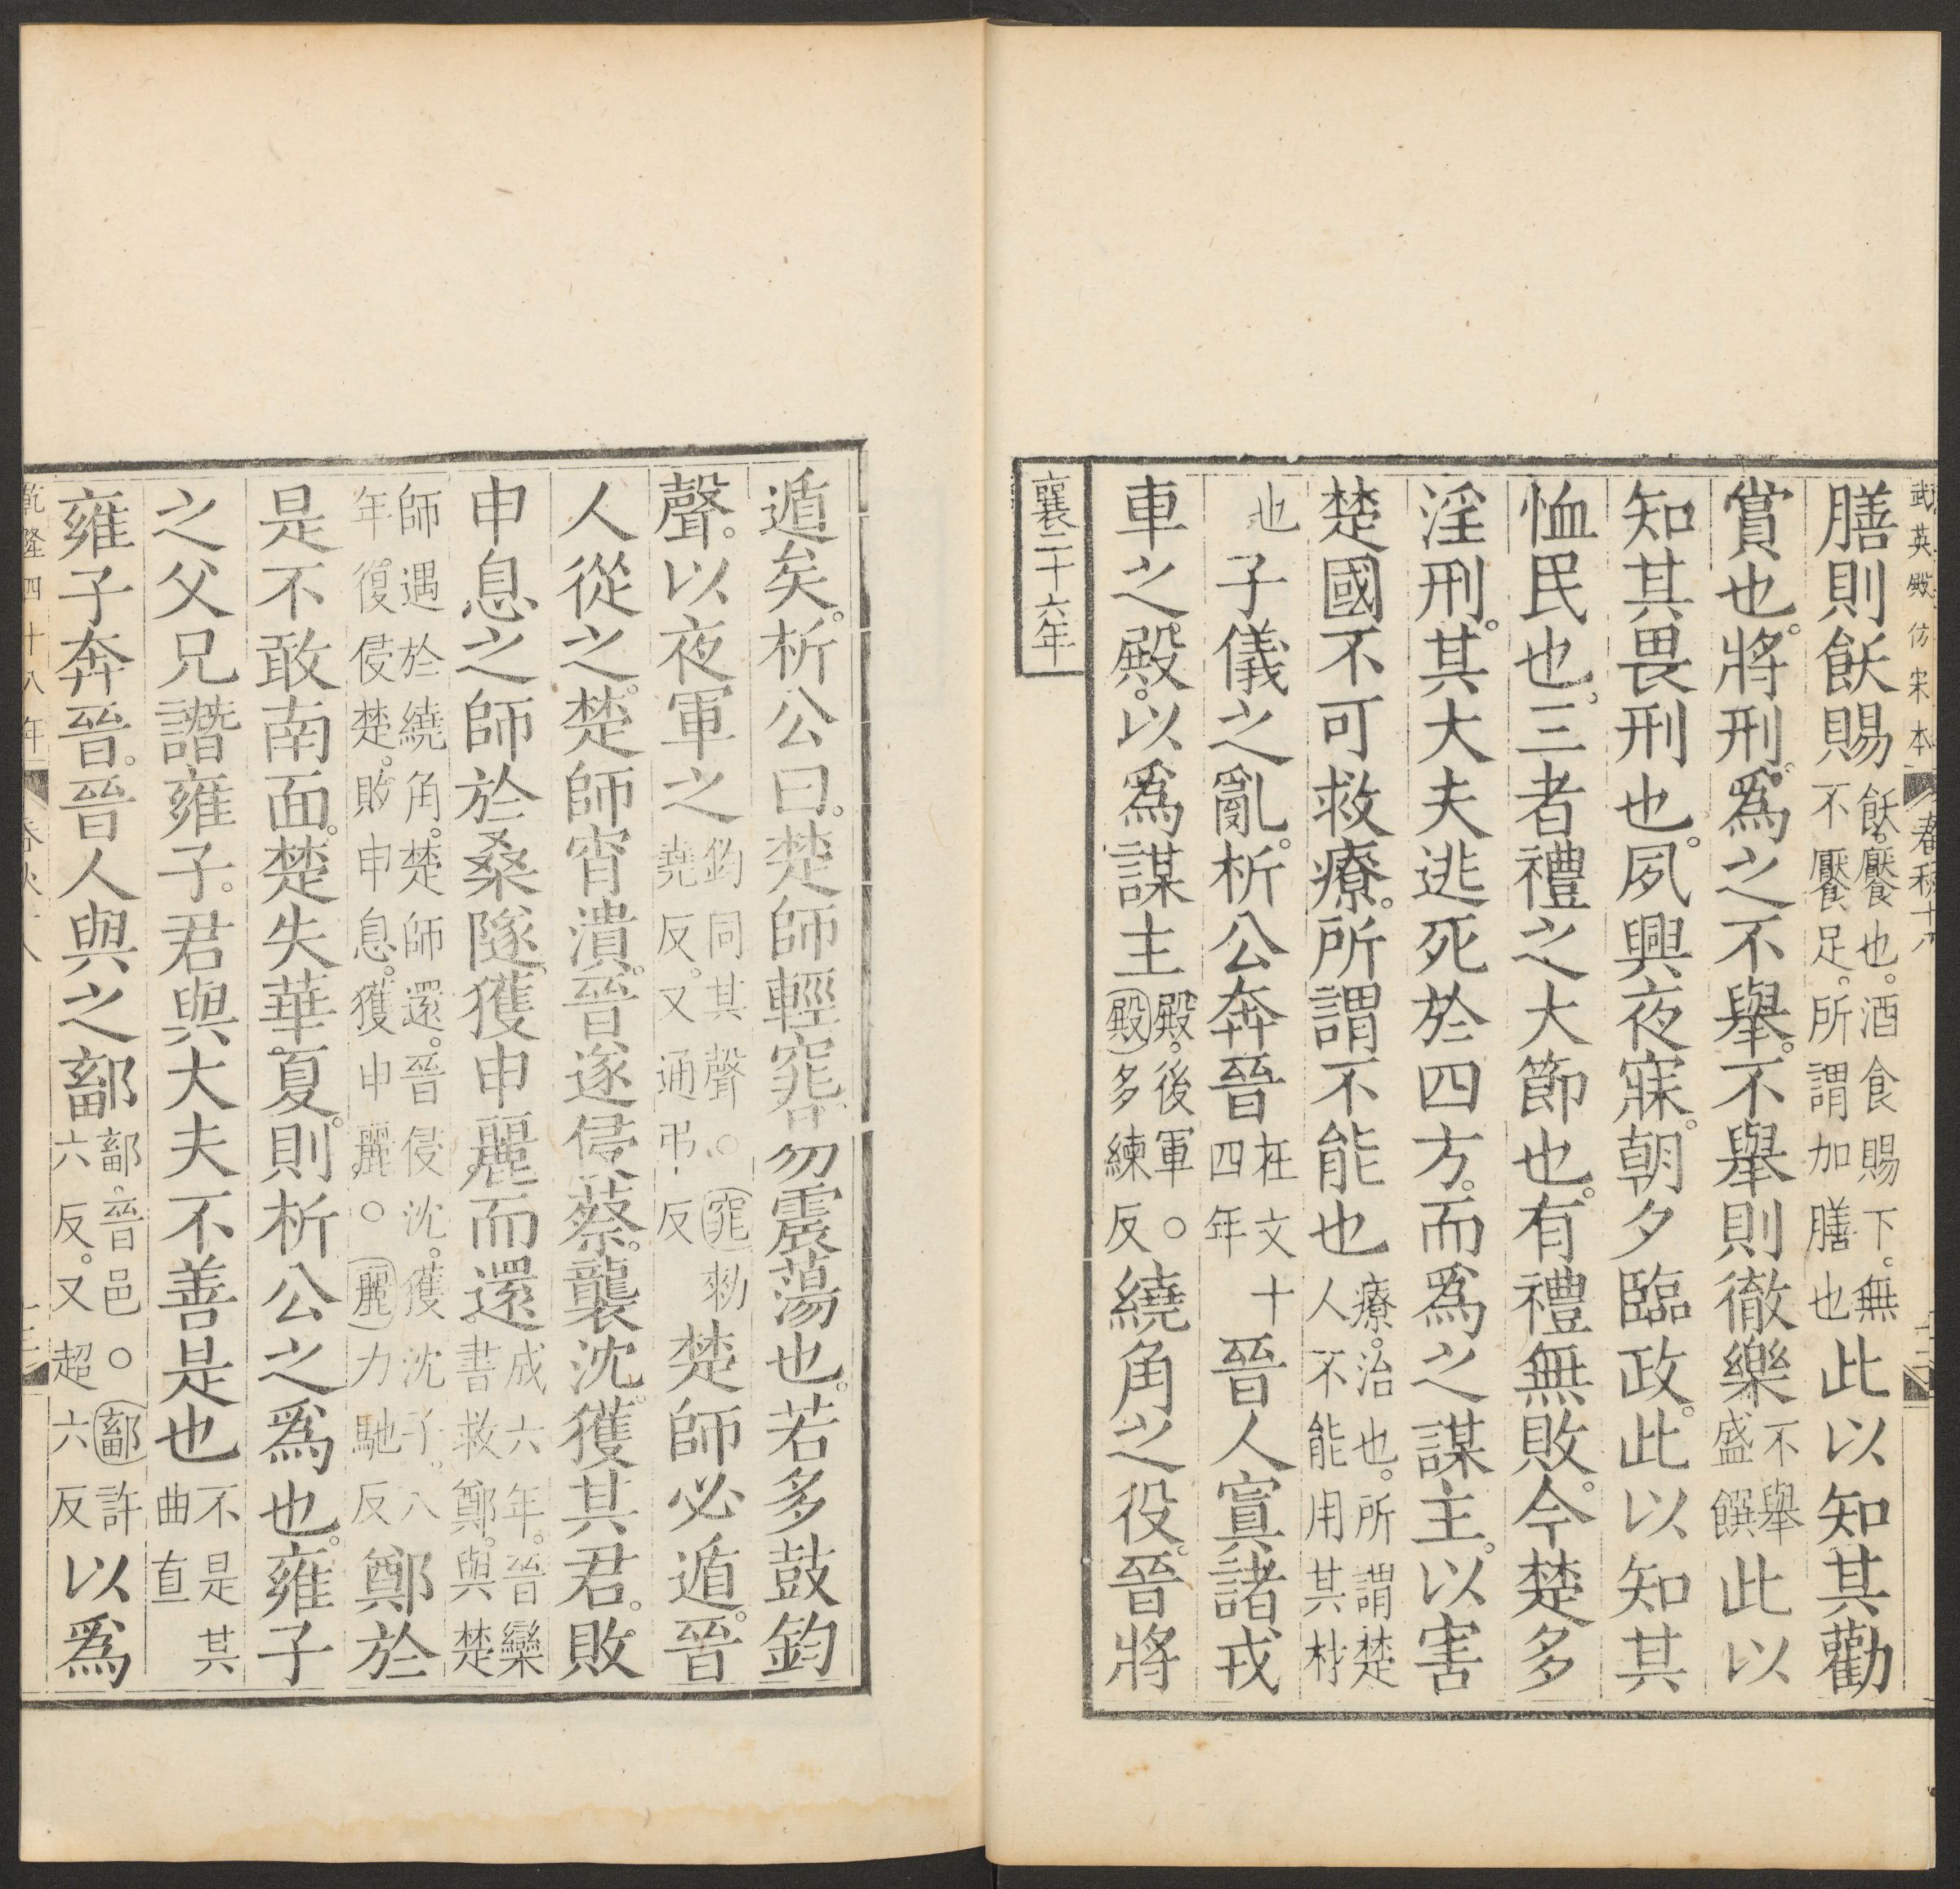 武英殿仿宋本 春秋十八 十二
膳則飫賜飫。饜也。酒食賜下。無不饜足。所謂加膳也此以知其勸
賞也。將刑。爲之不舉。不舉則徹樂不舉盛饌此以
知其畏刑也。夙興夜寐。朝夕臨政。此以知其
恤民也。三者禮之大節也。有禮無敗。今楚多
淫刑。其大夫逃死於四方。而爲之謀主。以害
楚國不可救療。所謂不能也療。治也。所謂楚人不能用其材
也子儀之亂。析公奔晉在文十四年晉人寘諸戎
車之殿。以爲謀主殿。後軍○殿多練反繞角之役。晉將
襄二十六年
遁矣。析公曰。楚師輕窕。易震蕩也。若多鼓鈞
聲。以夜軍之鈞同其聲○窕勑堯反。又通弔反楚師必遁。晉
人從之。楚師宵潰。晉遂侵蔡。襲沈。獲其君。敗
申息之師於桑隧。獲申麗而還。成六年。晉欒書救鄭。與楚
師遇於繞角。楚師還。晉侵沈。獲沈子。八年。復侵楚。敗申息。獲申麗○麗力馳反鄭於
是不敢南面。楚失華夏。則析公之爲也。雍子
之父兄譖雍子。君與大夫不善是也不是其曲直
雍子奔晉。晉人與之鄐鄐。晉邑○鄐許六反。又超六反以爲
乾隆四十八年 春秋十八